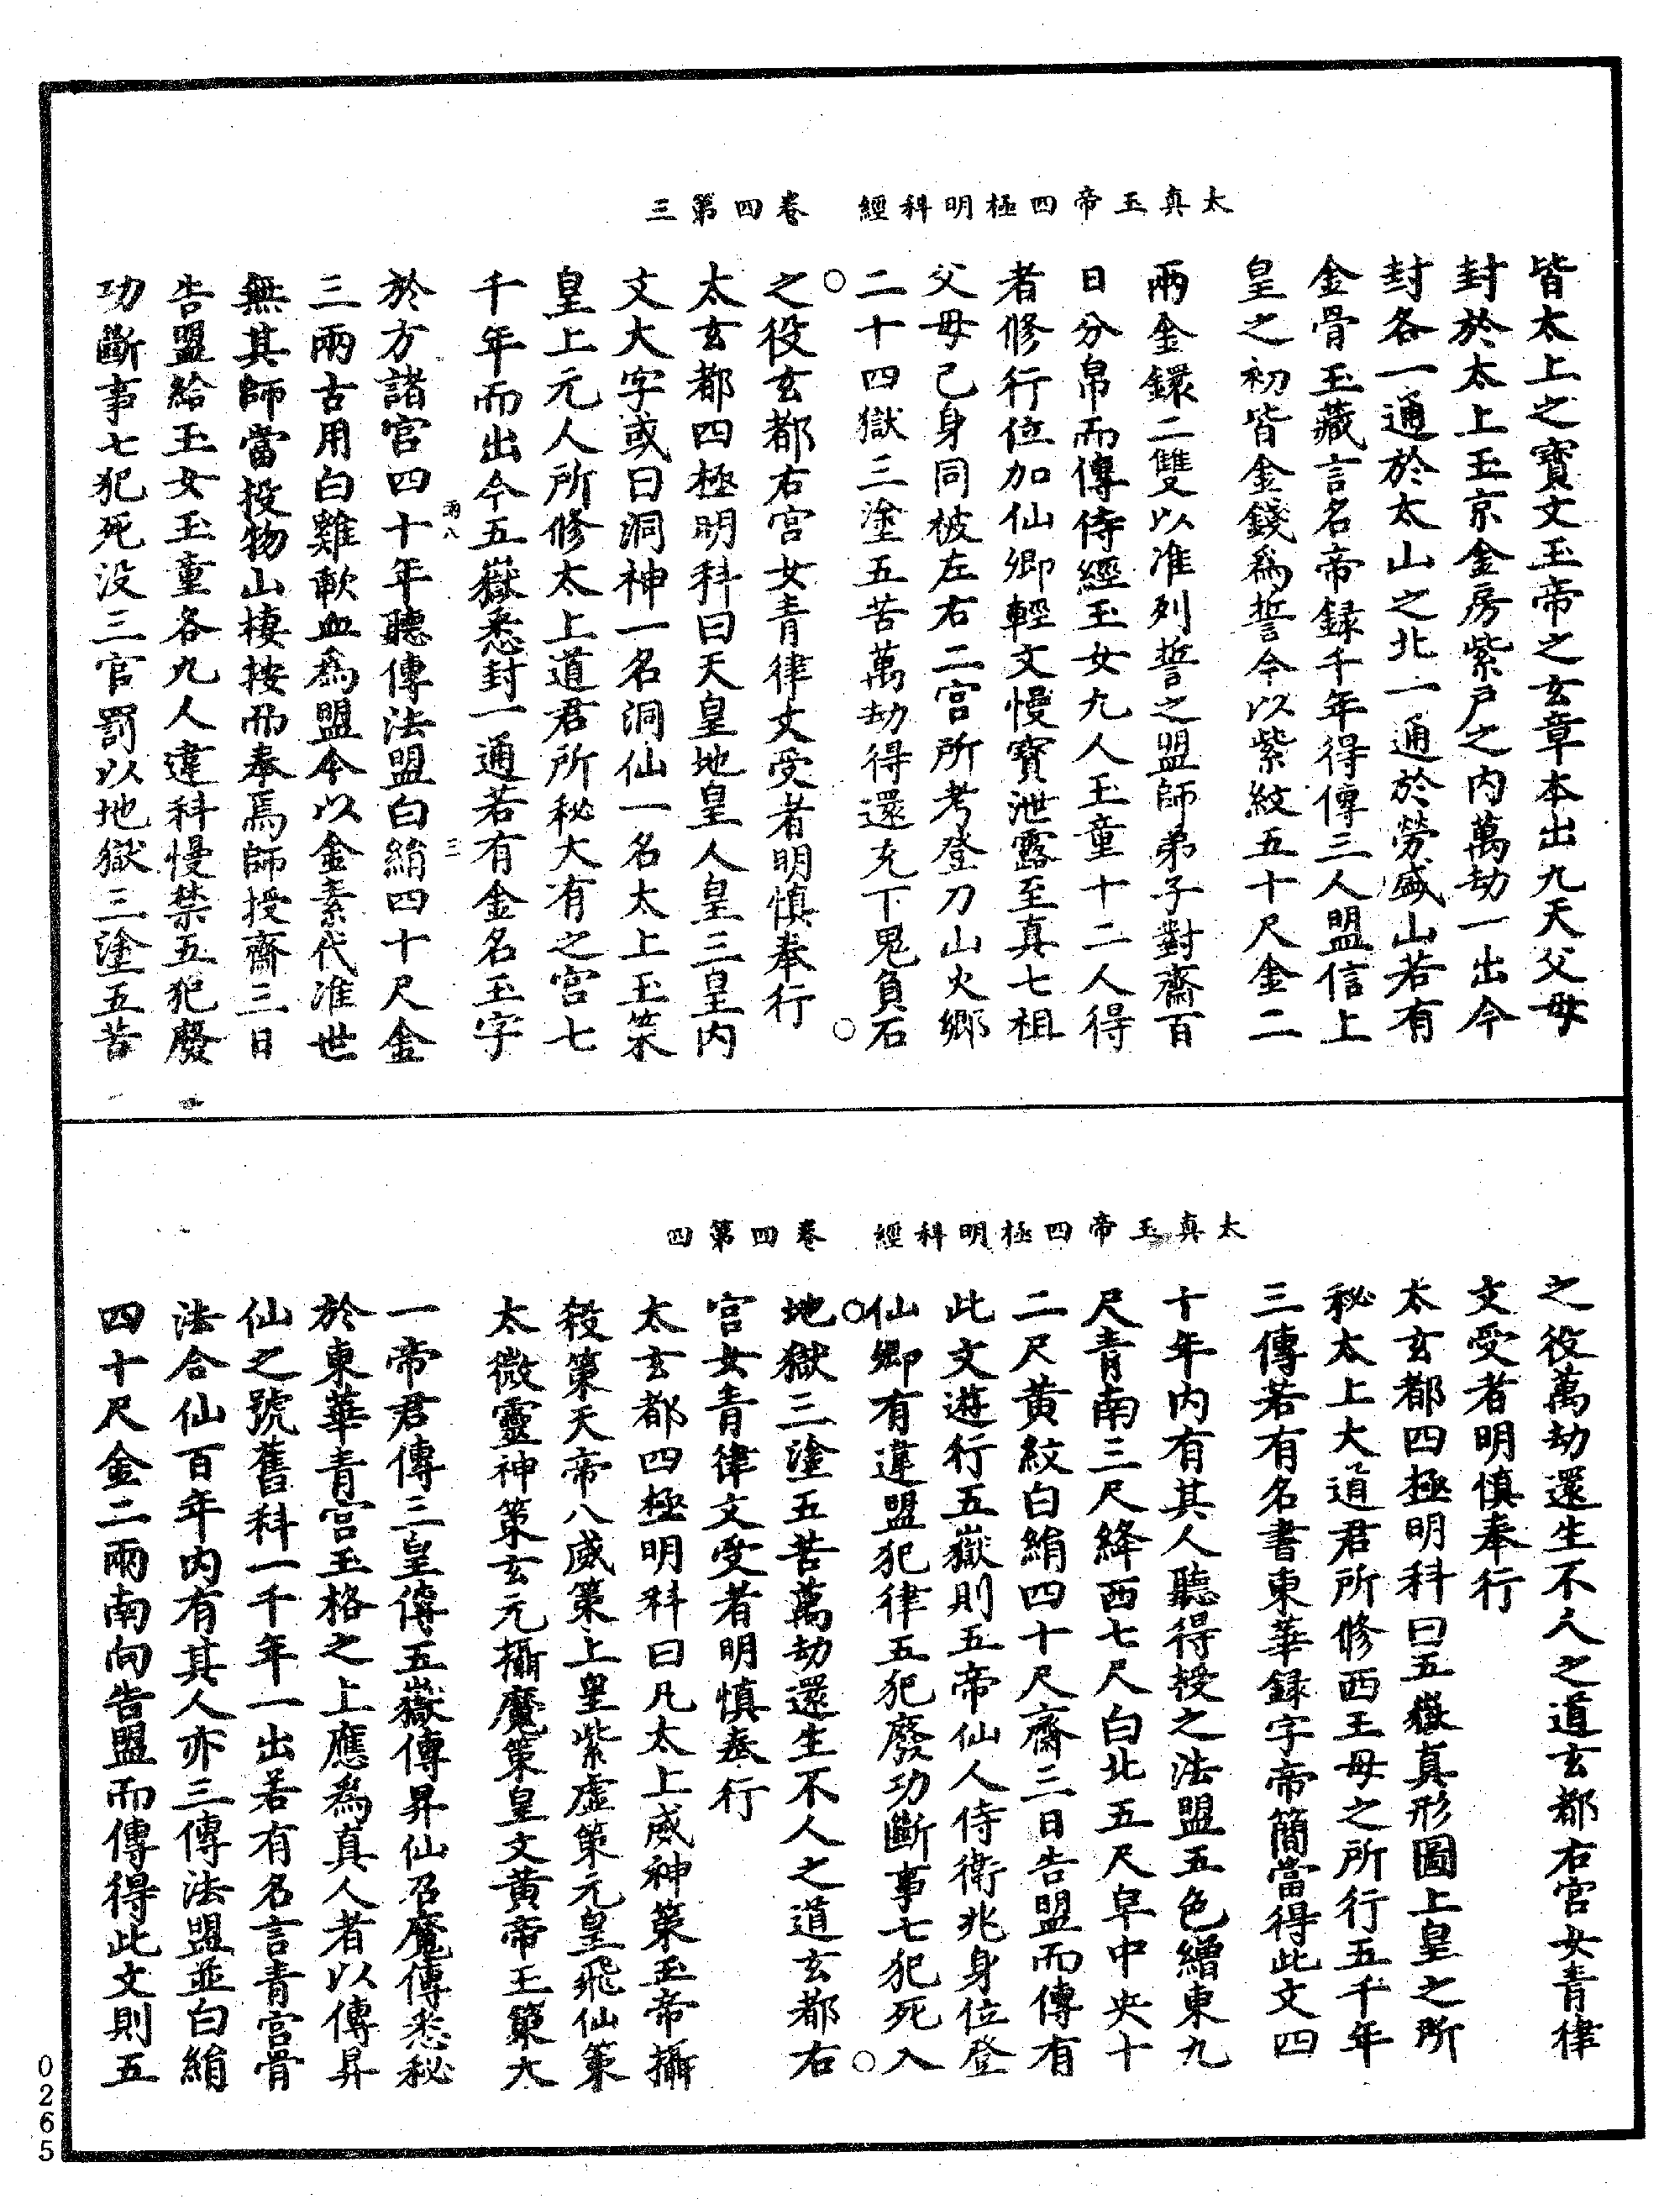 太真玉帝四極明科經　卷四第三
皆太上之寶文玉帝之玄章本出九天父母
封於太上玉京金房紫戶之内萬劫一出今
封各一通於太山之北一通於勞盛山若有
金骨玉藏言名帝録千年得傳三人盟信上
皇之初皆金錢爲誓今以紫紋五十尺金二
兩金鐶二雙以准列誓之盟師弟子對齋百
日分帛而傳侍經玉女九人玉童十二人得
者修行位加仙卿輕文慢寶泄露至真七祖
父母己身同被左右二宫所考登刀山火鄉
二十四獄三塗五苦萬劫得還充下鬼負石
之役玄都右宫女青律文受者明慎奉行
太玄都四極明科曰天皇地皇人皇三皇内
文大字或曰洞神一名洞仙一名太上玉策
皇上元人所修太上道君所秘大有之宫七
千年而出今五嶽悉封一通若有金名玉字
兩八　三
於方諸宫四十年聽傳法盟白絹四十尺金
三兩古用白雞歃血爲盟今以金素代准世
無其師當投物山棲按而奉焉師授齋三日
告盟給玉女玉童各九人違科慢禁五犯廢
功斷事七犯死没三官罰以地獄三塗五苦
太真玉帝四極明科經　卷四第四
之役萬劫還生不人之道玄都右宫女青律
文受者明慎奉行
太玄都四極明科曰五嶽真形圖上皇之所
秘太上大道君所修西王母之所行五千年
三傳若有名書東華録字帝簡當得此文四
十年内有其人聽得授之法盟五色繒東九
尺青南三尺絳西七尺白北五尺皁中央十
二尺黄紋白絹四十尺齋三日告盟而傳有
此文遊行五嶽則五帝仙人侍衛兆身位登
仙卿有違盟犯律五犯廢功斷事七犯死入
地獄三塗五苦萬劫還生不人之道玄都右
宫女青律文受者明慎奉行
太玄都四極明科曰凡太上威神策玉帝攝
殺策天帝八威策上皇紫虚策元皇飛仙策
太微靈神策玄元攝魔策皇文黄帝王策大
一帝君傳三皇傳五嶽傳昇仙召魔傳悉秘
於東華青宫玉格之上應爲真人者以傳昇
仙之號舊科一千年一出若有名言青宫骨
法合仙百年内有其人亦三傳法盟並白絹
四十尺金二兩南向告盟而傳得此文則五
0265